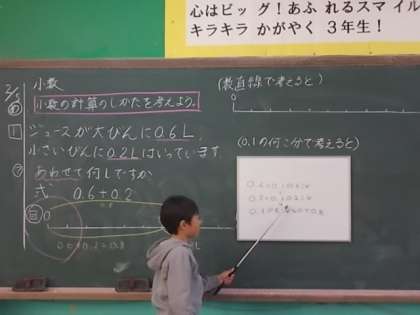 心はビッグ!あふれるスマイル
キラキラ かがやく 3年生!
2/5
小数
小数の計算のしかたを考えよう。
1 ジュースが大びんに0.6L、
小さいびんに0.2Lはいっています。
あわせて何Lですか
式 0.6+0.2
0
L
0.6+0.2=0.8
(数直線で考えると)
0
(0.1の何こ分で考えると)